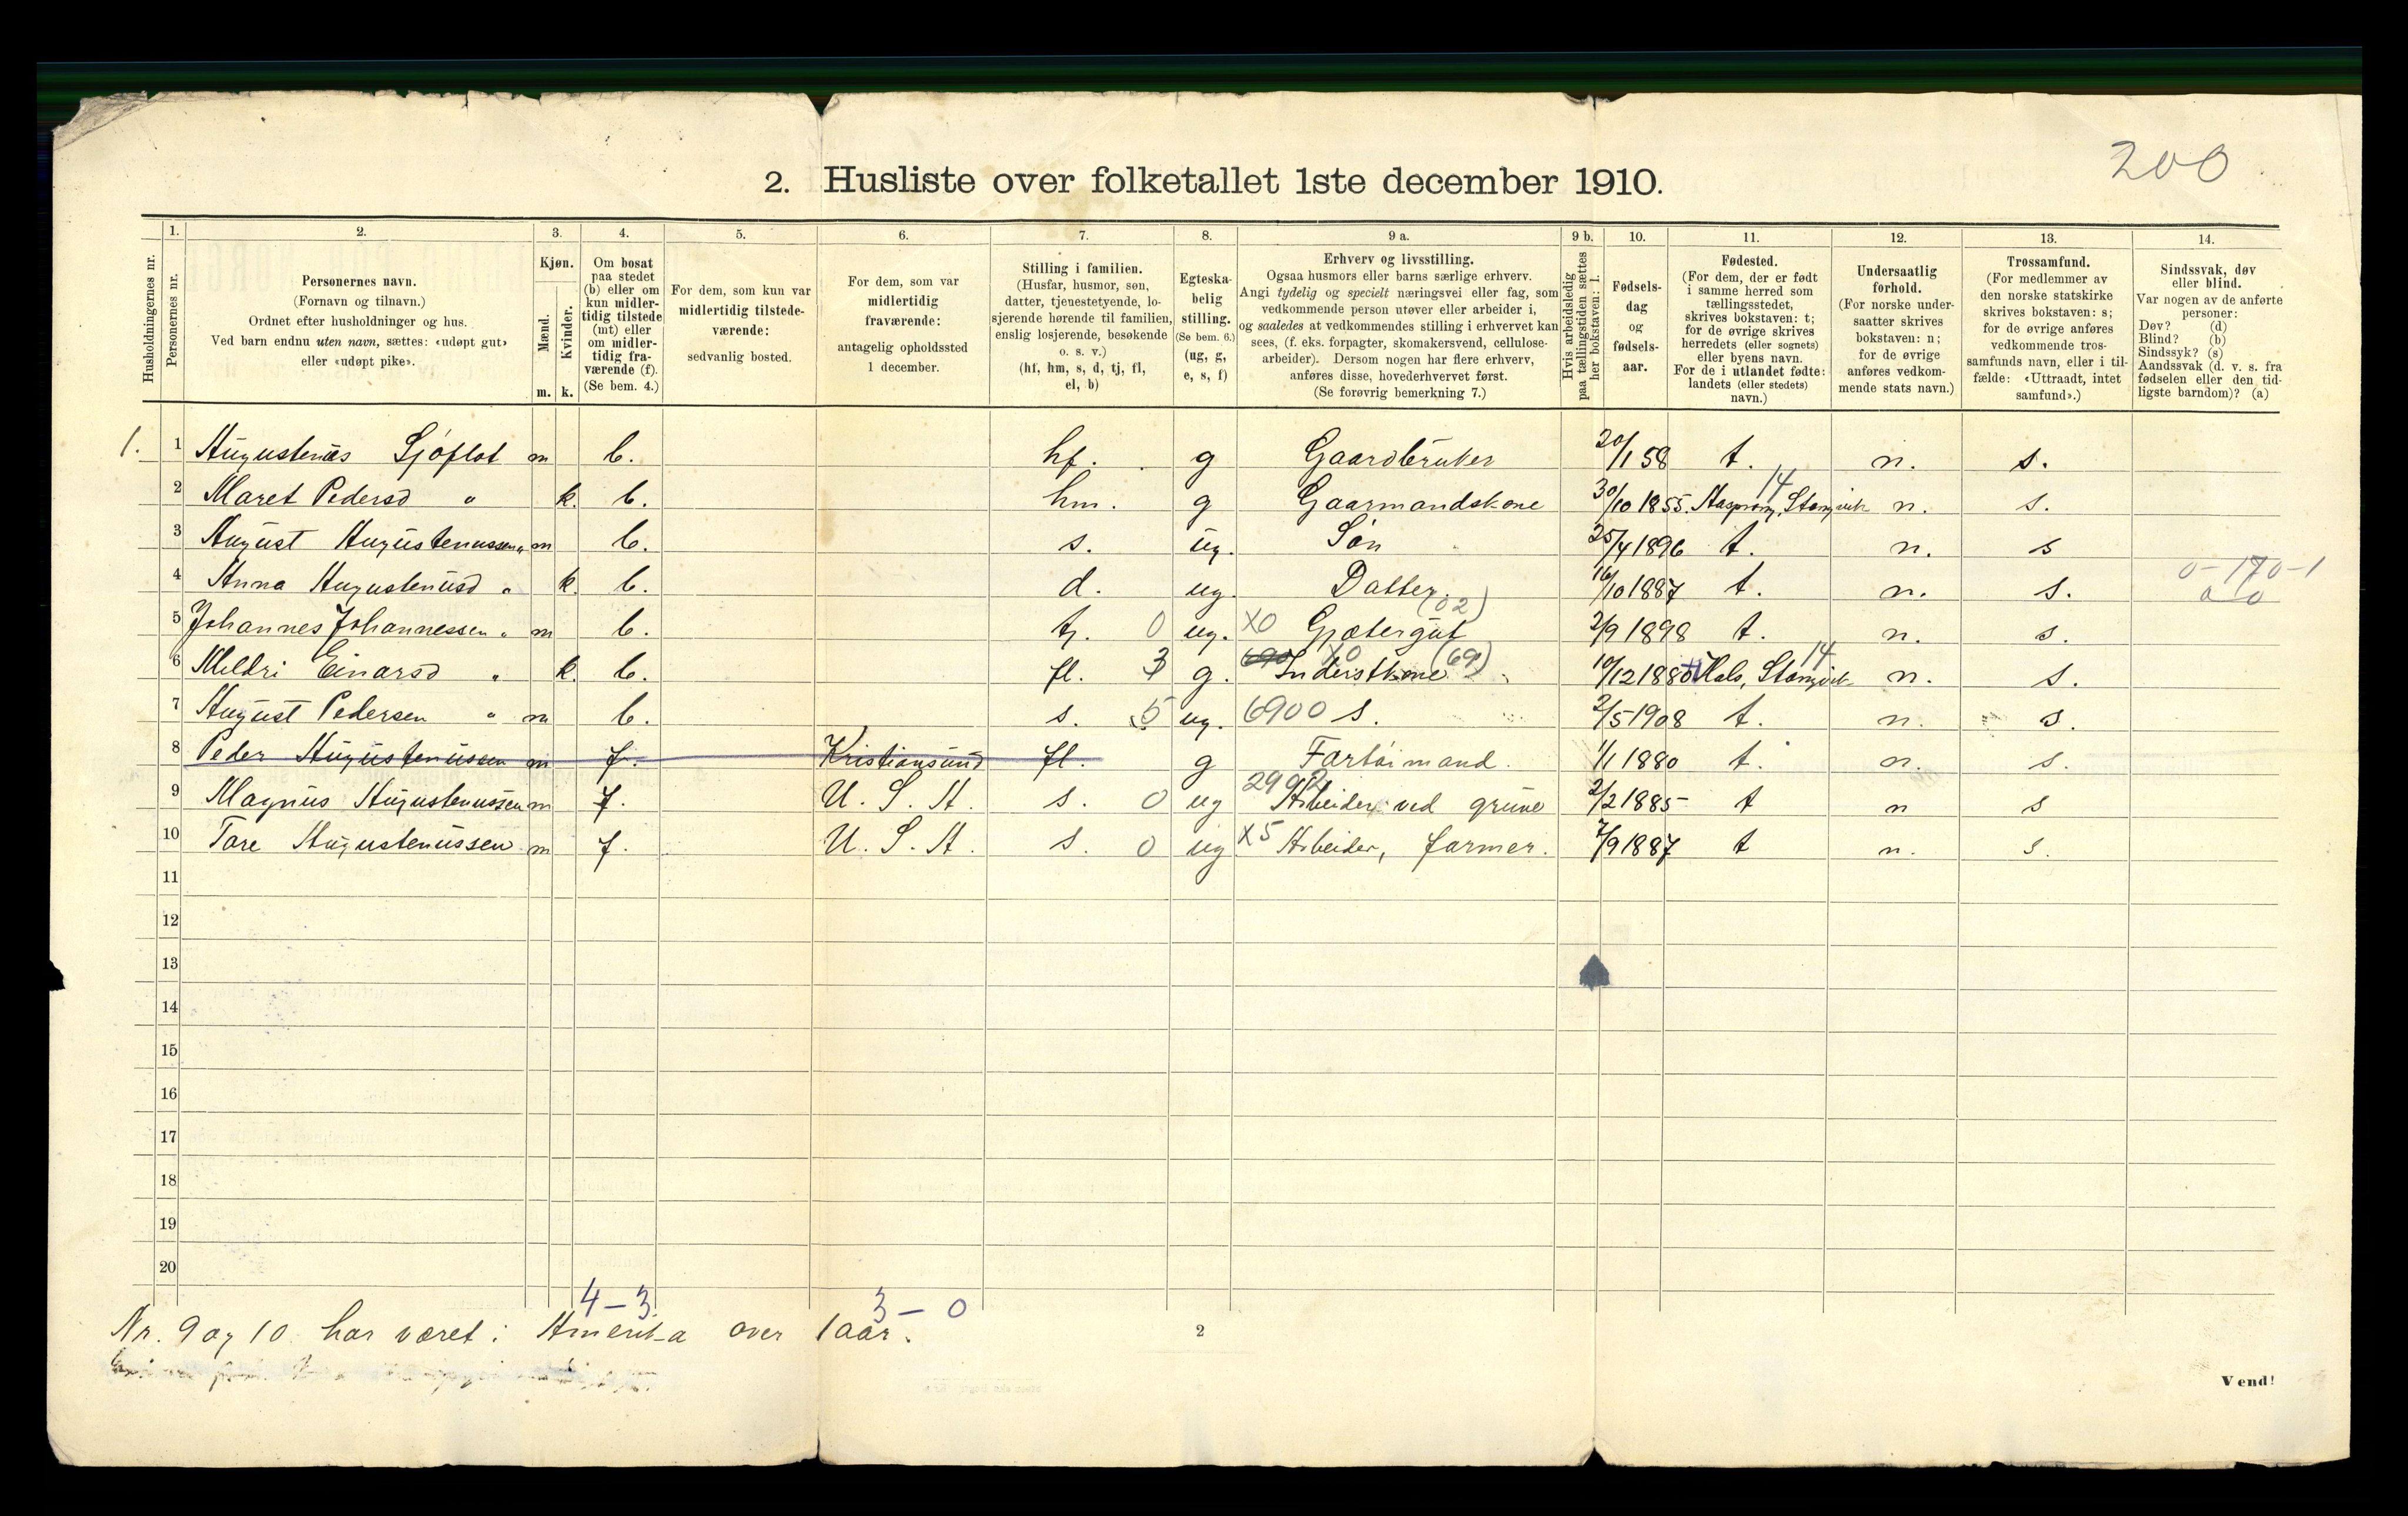 200
2. Husliste over folketallet 1ste december 1910.
Husholdningernes nr.
1. Personernes nr.
2. Personernes navn.
(Fornavn og tilnavn.)
Ordnet efter husholdninger og hus.
Ved barn endnu uten navn, sættes: «udøpt gut»
eller «udøpt pike».
3. Kjøn.
Mænd. m.
Kvinder. k.
4. Om bosat
paa stedet
(b) eller om
kun midler-
tidig tilstede
(mt) eller
om midler-
tidig fra-
værende (f).
(Se bem. 4.)
5. For dem, som kun var
midlertidig tilstede-
værende:
sedvanlig bosted.
6. For dem, som var
midlertidig
fraværende:
antagelig opholdssted
1 december.
7. Stilling i familien.
(Husfar, husmor, søn,
datter, tjenestetyende, lo-
sjerende hørende til familien,
enslig losjerende, besøkende
o. s. v.)
(hf, hm, s, d, tj, fl,
el, b)
8. Egteska-
belig
stilling.
(Se bem. 6.)
(ug, g,
e, s, f)
9 a. Erhverv og livsstilling.
Ogsaa husmors eller barns særlige erhverv.
Angi tydelig og specielt næringsvei eller fag, som
vedkommende person utøver eller arbeider i,
og saaledes at vedkommendes stilling i erhvervet kan
sees, (f. eks. forpagter, skomakersvend, cellulose-
arbeider). Dersom nogen har flere erhverv,
anføres disse, hovederhvervet først.
(Se forøvrig bemerkning 7.)
9 b. Hvis arbeidsledig
paa tællingstiden sættes
her bokstaven: l.
10. Fødsels-
dag
og
fødsels-
aar.
11. Fødested.
(For dem, der er født
i samme herred som
tællingsstedet,
skrives bokstaven: t;
for de øvrige skrives
herredets (eller sognets)
eller byens navn.
For de i utlandet fødte:
landets (eller stedets)
navn.)
12. Undersaatlig
forhold.
(For norske under-
saatter skrives
bokstaven: n;
for de øvrige
anføres vedkom-
mende stats navn.)
13. Trossamfund.
(For medlemmer av
den norske statskirke
skrives bokstaven: s;
for de øvrige anføres
vedkommende tros-
samfunds navn, eller i til-
fælde: «Uttraadt, intet
samfund».)
14. Sindssvak, døv
eller blind.
Var nogen av de anførte
personer:
Døv? (d)
Blind? (b)
Sindssyk? (s)
Aandssvak (d. v. s. fra
fødselen eller den tid-
ligste barndom)? (a)
1. 1 Augustenus Sjøflot m b. hf. g Gaardbruker 20/1 58 t. n. s.
2 Maret Pedersd " k. b. hm. g Gaarmandskone 30/10 1855. Stangvik 14 n. s.
3 August Augustenussen " m b. s. ug. Søn 25/4 1896 t. n. s
4 Anna Augustenusd " k. b. d. ug. Datter. 16/10 1887 t. n. s. 0-170-1
0 0
5 Johannes Johannessen " m b. tj. 0 ug. X0 Gjætergut (02) 2/9 1898 t. n. s.
6 Mildri Einarsd " k. b. fl. 3 g. 690 X0 Inderstkone (69) 10/12 1880 Hals, Stangvik 14 n. s.
7 August Pedersen " m b. s. 5 ug. 6900 s. 2/5 1908 t. n. s.
8 Peder Augustenussen m f. Kristiansund fl. g Fartøimand. 1/1 1880 t. n. s.
9 Magnus Augustenussen m f. U. S. A. s. 0 ug 2992 Arbeider ved grube 2/2 1885 t n s
10 Tore Augustenussen m f. U. S. A. s. 0 ug X5 Arbeider, farmer. 7/9 1887 t n. s.
11
12
13
14
15
16
17
18
19
20
4-3 3-0
Nr. 9 og 10 har været i Amerika over 1 aar.
2
Vend!